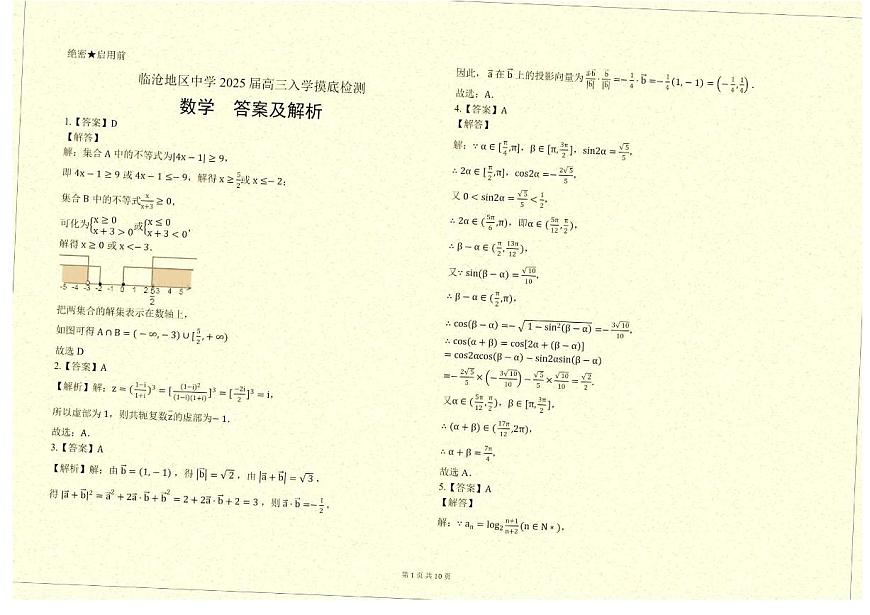 绝密★启用前
临沧地区中学 2025 届高三入学摸底检测
数学 答案及解析
1.【答案】D
【解答】
解：集合 A 中的不等式为|4x − 1| ≥ 9，
即 4x − 1 ≥ 9 或 4x − 1 ≤− 9，解得 x ≥ 5/2 或 x ≤− 2；
集合 B 中的不等式 x/(x+3) ≥ 0，
可化为{x ≥ 0, x + 3 > 0 或{x ≤ 0, x + 3 < 0，
解得 x ≥ 0 或 x <− 3．
-5 -4 -3 -2 -1 0 1 2 5/2 3 4 5
把两集合的解集表示在数轴上，
如图可得 A ∩ B = ( − ∞, − 3) ∪ [5/2, + ∞)
故选 D
2.【答案】A
【解析】解：z = ((1−i)/(1+i))³ = [(1−i)²/((1−i)(1+i))]³ = [−2i/2]³ = i，
所以虚部为 1，则共轭复数z̄的虚部为− 1．
故选：A．
3.【答案】A
【解析】解：由 b⃗ = (1, − 1) ，得 |b⃗| = √2 ，由 |a⃗ + b⃗| = √3 ，
得 |a⃗ + b⃗|² = a⃗² + 2a⃗ · b⃗ + b⃗² = 2 + 2a⃗ · b⃗ + 2 = 3 ，则 a⃗ · b⃗ =− 1/2 ，
因此， a⃗ 在 b⃗ 上的投影向量为 (a⃗·b⃗)/|b⃗| · b⃗/|b⃗| =− 1/4 · b⃗ =− 1/4(1, − 1) = (− 1/4, 1/4) ．
故选：A．
4.【答案】A
【解答】
解：∵ α ∈ [π/4,π]，β ∈ [π, 3π/2]，sin2α = √5/5，
∴ 2α ∈ [π/2,π]，cos2α =− 2√5/5，
又 0 < sin2α = √5/5 < 1/2，
∴ 2α ∈ (5π/6,π)，即α ∈ (5π/12, π/2)，
∴ β − α ∈ (π/2, 13π/12)，
又∵ sin(β − α) = √10/10，
∴ β − α ∈ (π/2,π)，
∴ cos(β − α) =− √(1 − sin²(β − α)) =− 3√10/10，
∴ cos(α + β) = cos[2α + (β − α)]
= cos2αcos(β − α) − sin2αsin(β − α)
=− 2√5/5 × (− 3√10/10) − √5/5 × √10/10 = √2/2．
又α ∈ (5π/12, π/2)，β ∈ [π, 3π/2]，
∴ (α + β) ∈ (17π/12,2π)，
∴ α + β = 7π/4，
故选 A．
5.【答案】A
【解答】
解：∵ aₙ = log₂ (n+1)/(n+2) (n ∈ N ∗)，
第 1 页 共 10 页